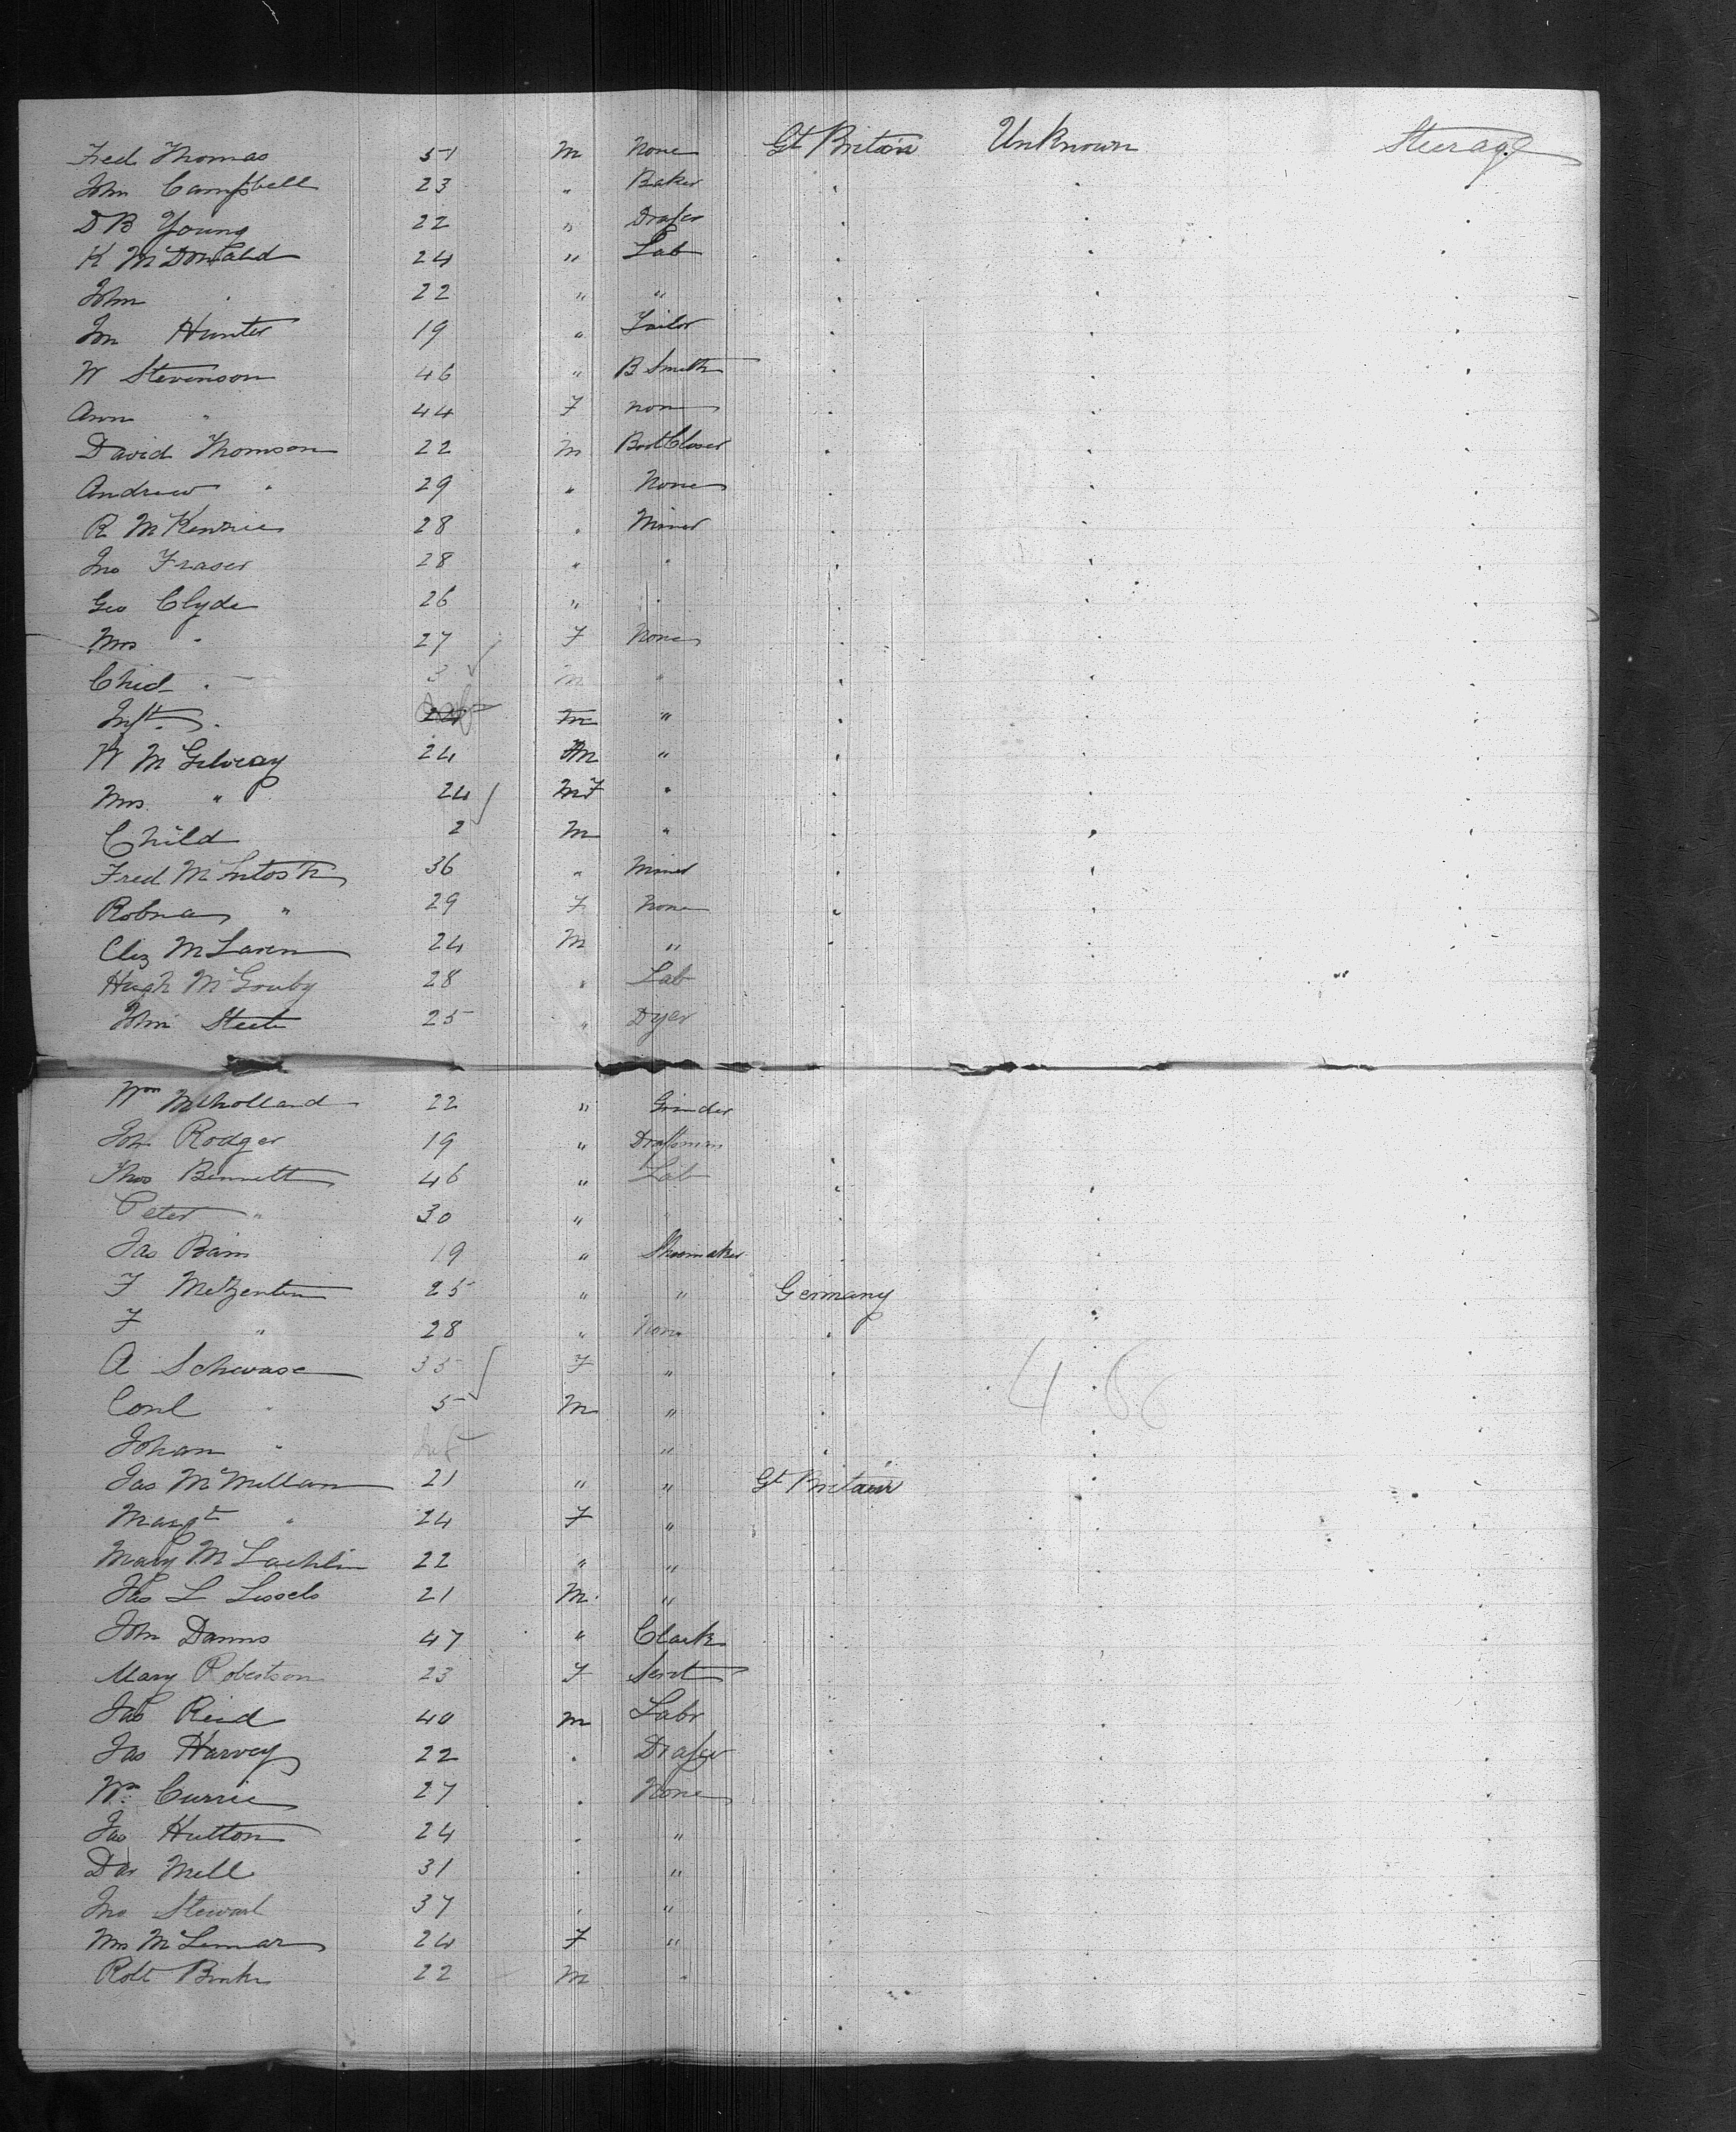 Fred Thomas 51 M None Gt Britain Unknown Steerage
John Campbell 23 " Baker
D B Young 22 " Draper
K McDonald 24 " Lab
John " 22 " "
Jno Hunter 19 " Tailor
W Stevenson 46 " B Smith
Ann " 44 F none
David Thomson 22 M Boot Closer
Andrew " 29 " None
R McKenzie 28 " Miner
Jno Fraser 28 " "
Geo Clyde 26 " "
Mrs " 27 F None
Chid " 3 M "
Inft " Inf M "
W McGilvray 24 M "
Mrs " 24 F "
Child 2 M "
Fred McIntosh 36 " Miner
Robina " 29 F None
Eliz McLaren 24 M "
Hugh 28 " Lab
John Steele 25 " Dyer
Wm Mulholland 22 " Grinder
John Rodger 19 "
Thos Bennett 46 " Lab
Peter " 30 " "
Jas Bain 19 " Shoemaker
F Metzentin 25 " " Germany
F " 28 " None "
A Schwase 35 F "
" 5 M "
Johan " Inf "
Jas McMillan 21 " " Gt Britain
Margt " 24 F "
Mary McLachlin 22 " "
Jas L 21 M "
John 47 " Clark
Mary Robertson 23 F Servt
Jas Reid 40 M Labr
Jas Harvey 22 " Draper
Wm Currie 27 " None
Jas Hutton 24 " "
Dav Mill 31 " "
Jno Stewart 37 " "
Mrs 24 F "
Robt 22 M "